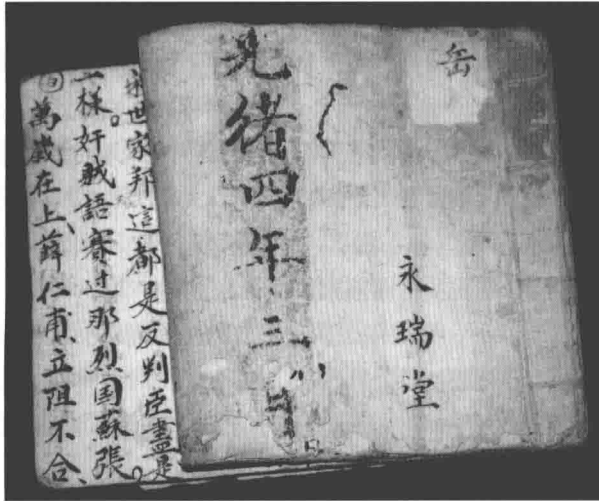 岳
永瑞堂
光绪四年三月
宋世家邦這都是反判臣盡是
一樣奸賊語賽过那烈国蘇張
白萬歲在上薛仁甫立阻不合